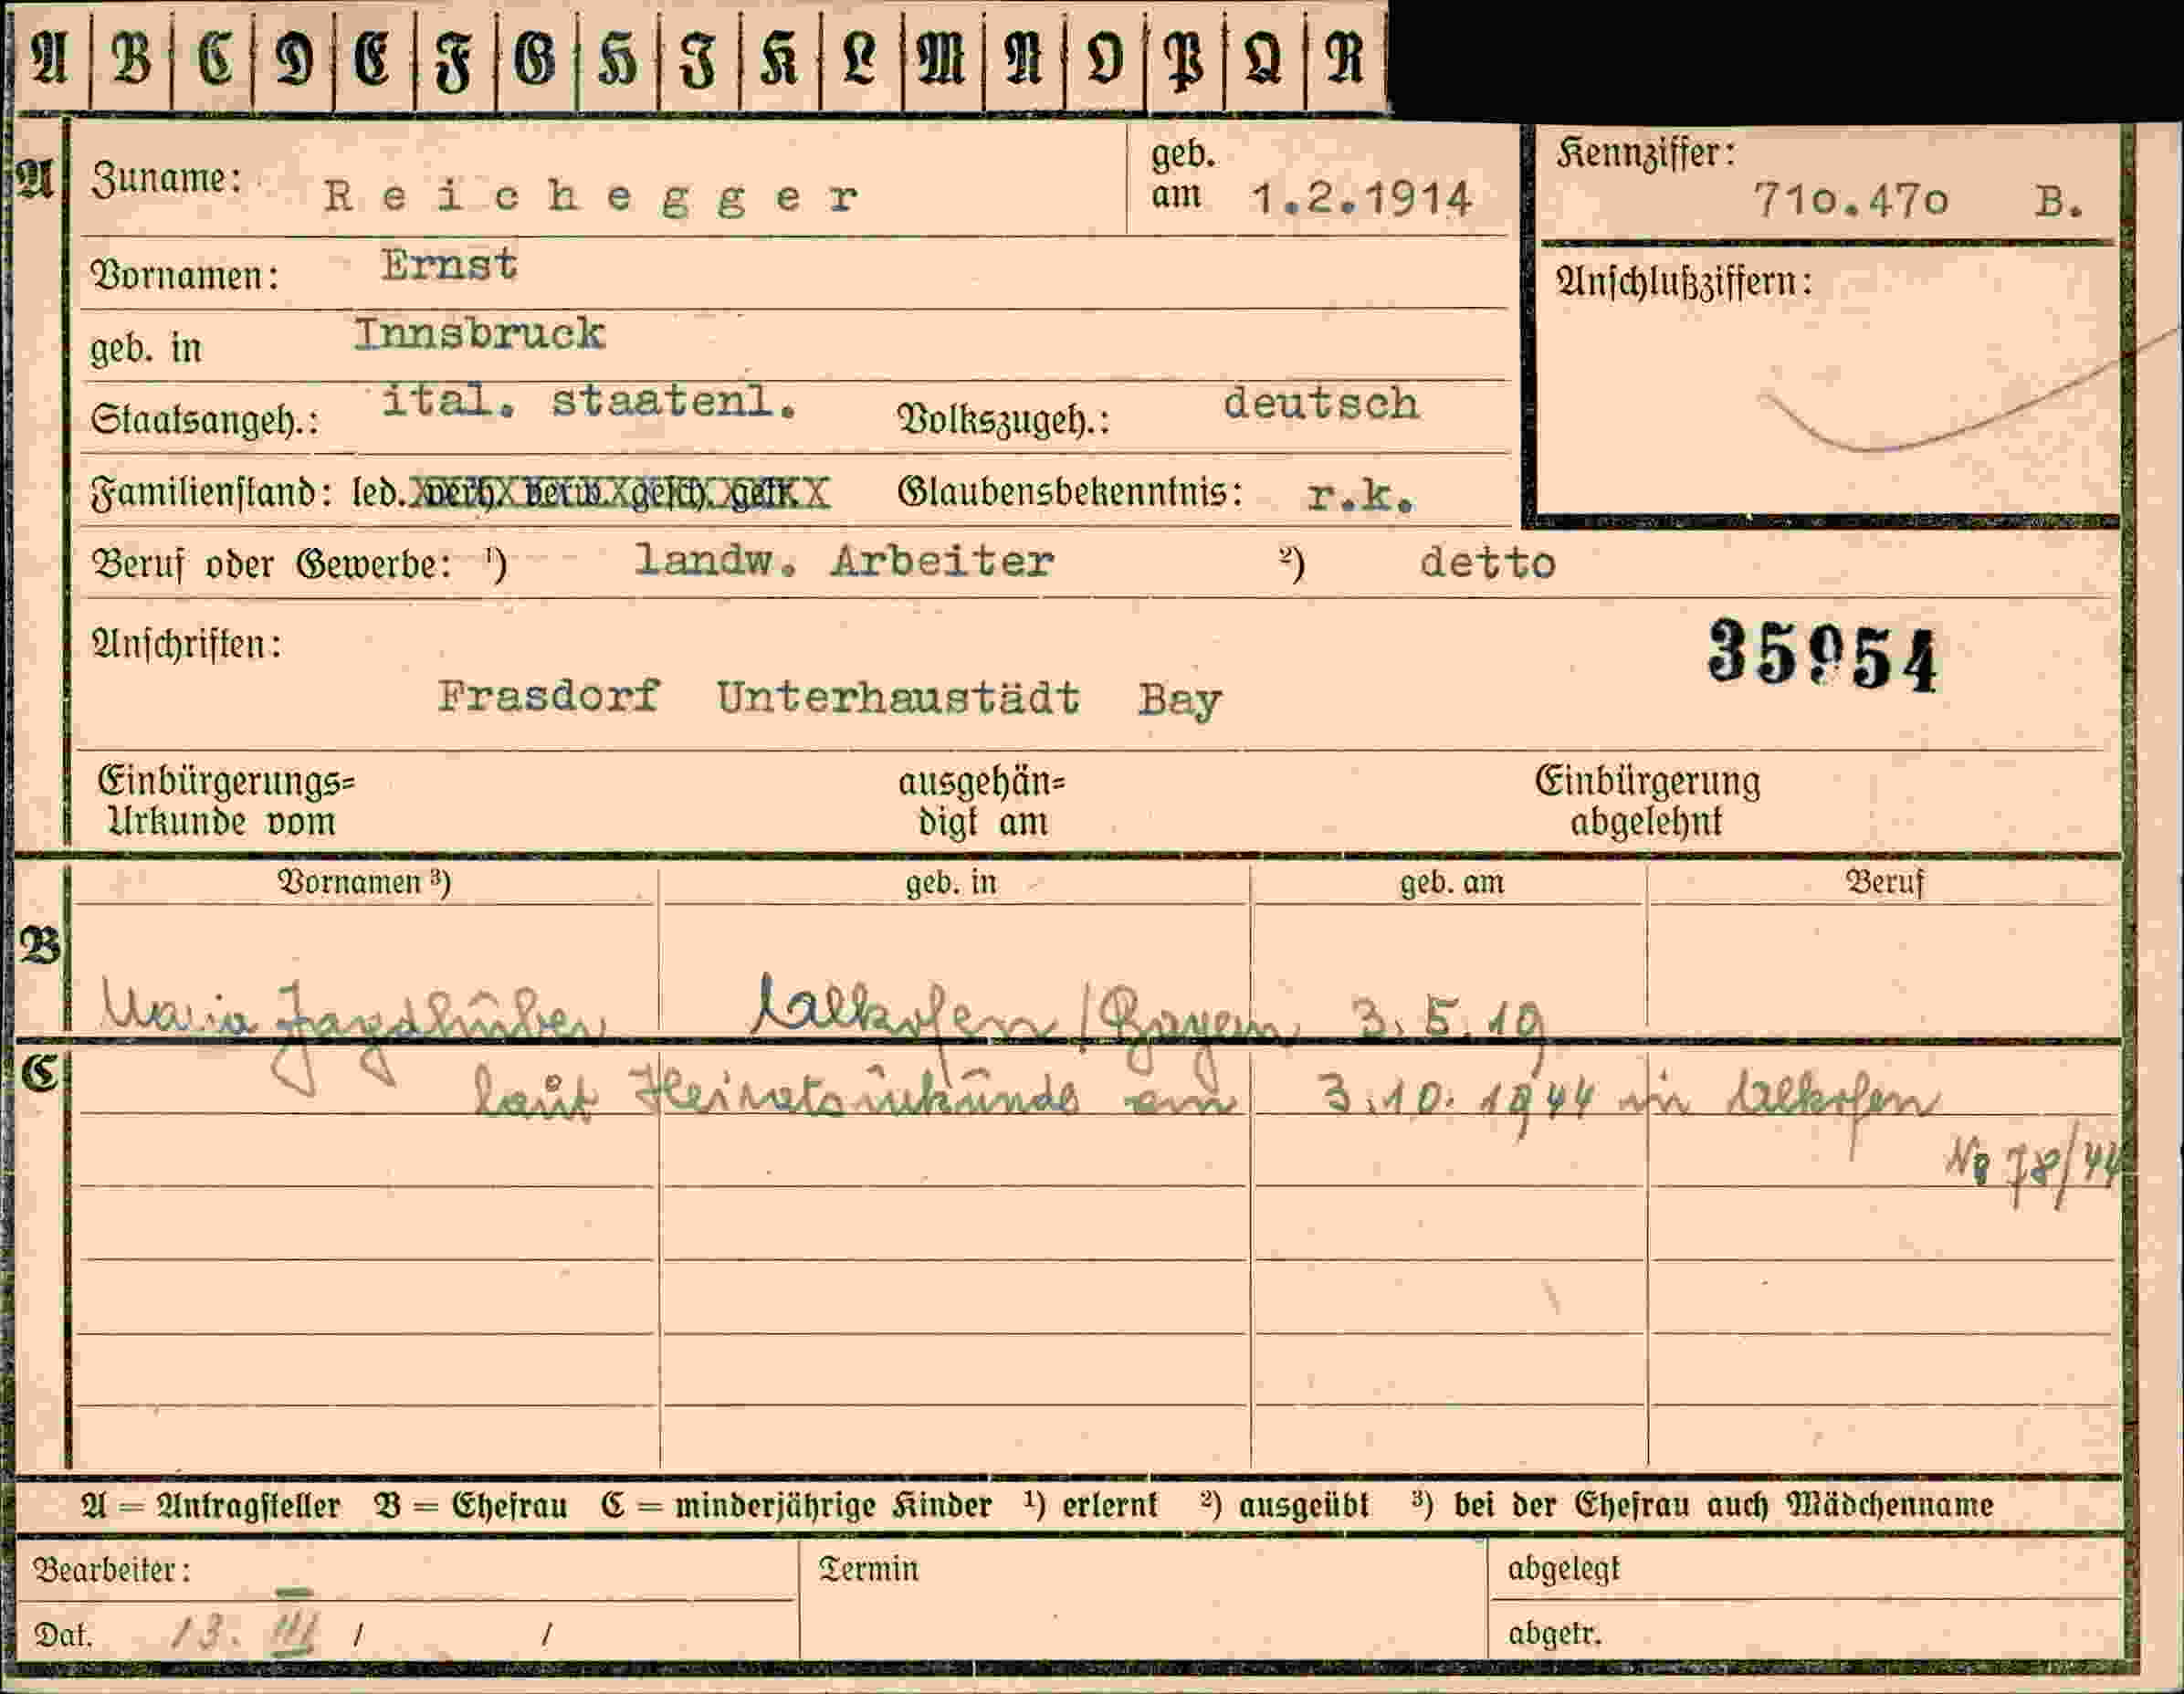 A B C D E F G H I K L M N O P Q R
A Zuname: Reichegger geb. am 1.2.1914 Kennziffer: 710.470 B.
Vornamen: Ernst Anschlußziffern:
geb. in Innsbruck
Staatsangeh.: ital. staatenl. Volkszugeh.: deutsch
Familienstand: led. verh. verw. gesch. getr. Glaubensbekenntnis: r.k.
Beruf oder Gewerbe: ¹) landw. Arbeiter ²) detto
Anschriften: 35954
Frasdorf Unterhaustädt Bay
Einbürgerungs= ausgehän= Einbürgerung
Urkunde vom digt am abgelehnt
Vornamen ³) geb. in geb. am Beruf
B
Maria Jagdhuber Alkofen / Bayern 3.5.19
C
laut Heiratsurkunde am 3.10.1944 in Alkofen
No 78/44
A = Antragsteller B = Ehefrau C = minderjährige Kinder ¹) erlernt ²) ausgeübt ³) bei der Ehefrau auch Mädchenname
Bearbeiter: Termin abgelegt
Dat. 13. III / / abgetr.